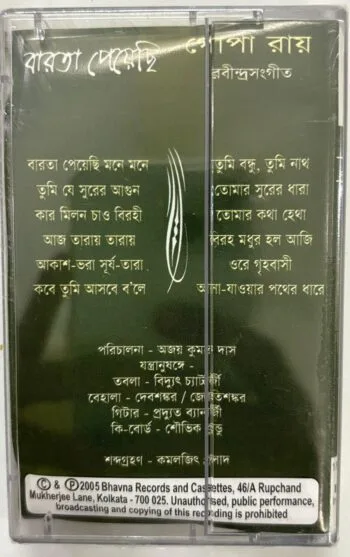 বারতা পেয়েছি
গোপা রায়
রবীন্দ্রসংগীত
বারতা পেয়েছি মনে মনে
তুমি যে সুরের আগুন
কার মিলন চাও বিরহী
আজ তারায় তারায়
আকাশ-ভরা সূর্য-তারা
কবে তুমি আসবে ব'লে
তুমি বন্ধু, তুমি নাথ
তোমার সুরের ধারা
তোমার কথা হেথা
বিরহ মধুর হল আজি
ওরে গৃহবাসী
আসা-যাওয়ার পথের ধারে
পরিচালনা - অজয় কুমার দাস
যন্ত্রানুষঙ্গে -
তবলা - বিদ্যুৎ চ্যাটার্জী
বেহালা - দেবশঙ্কর / জ্যোতিশঙ্কর
গিটার - প্রদ্যুত ব্যানার্জী
কি-বোর্ড - শৌভিক কুন্ডু
শব্দগ্রহণ - কমলজিৎ
© & ℗2005 Bhavna Records and Cassettes, 46/A Rupchand
Mukherjee Lane, Kolkata - 700 025. Unauthorised, public performance,
broadcasting and copying of this recording is prohibited